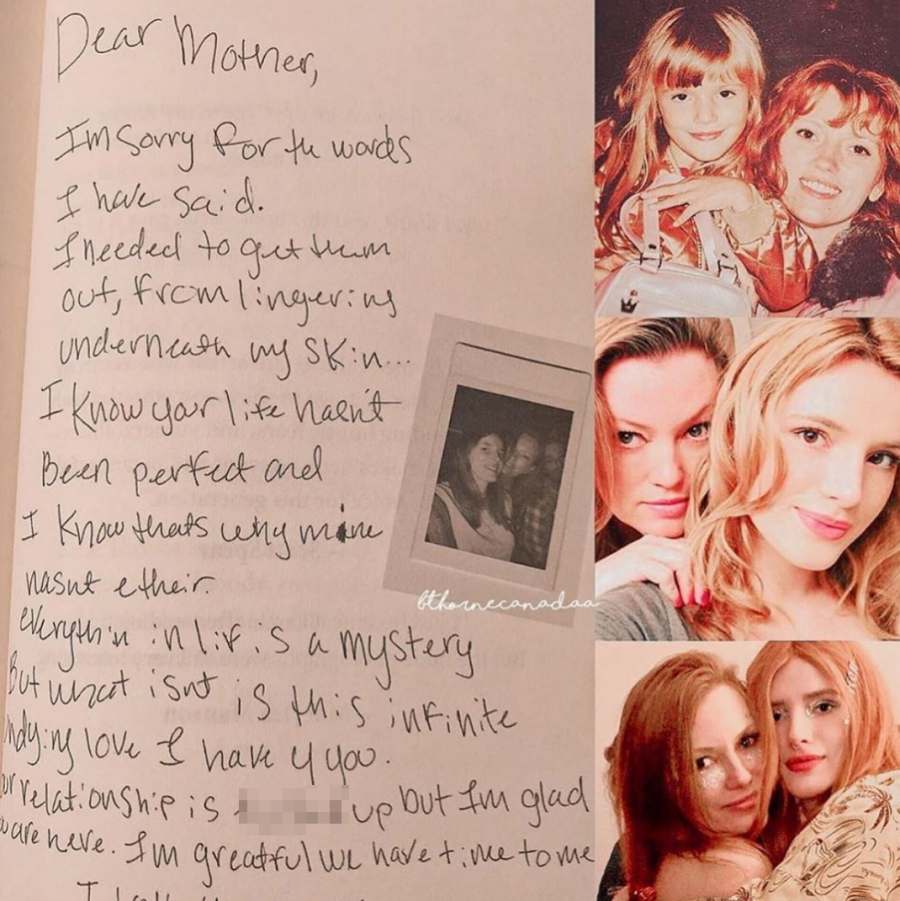 Dear Mother,
I'm sorry for the words
I have said.
I needed to get them
out, from lingering
underneath my skin...
I know your life hasn't
Been perfect and
I know thats why mine
hasnt etheir.
everythin in lif is a mystery
But what isnt is this infinite
undying love I have 4 you.
our relationship is up but I'm glad
you are here. I'm greatful we have time to me
bthornecanadaa